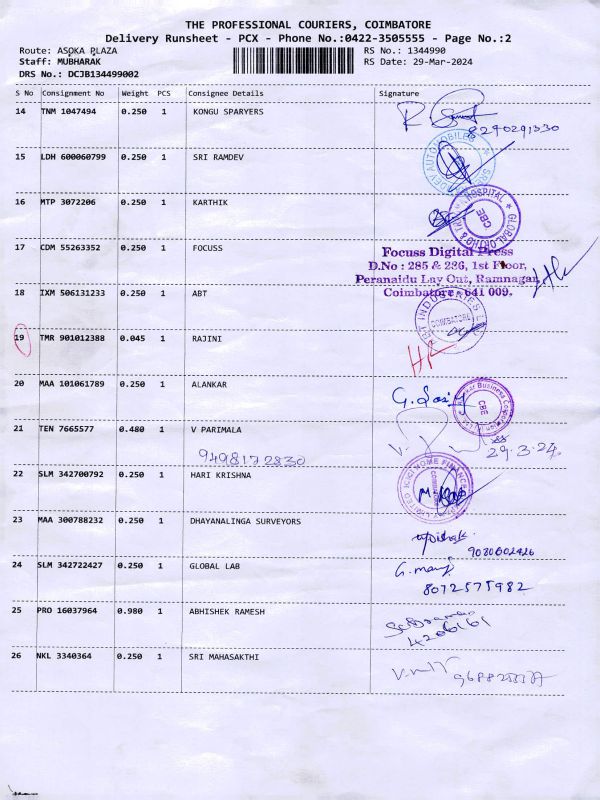 THE PROFESSIONAL COURIERS, COIMBATORE
Delivery Runsheet - PCX - Phone No.:0422-3505555 - Page No.:2
Route: ASOKA PLAZA RS No.: 1344990
Staff: MUBHARAK RS Date: 29-Mar-2024
DRS No.: DCJB134499002
S No Consignment No Weight PCS Consignee Details Signature
14 TNM 1047494 0.250 1 KONGU SPARYERS
8290291330
15 LDH 600060799 0.250 1 SRI RAMDEV
16 MTP 3072206 0.250 1 KARTHIK
HOSPITAL
CBE
17 CDM 55263352 0.250 1 FOCUSS
Focuss Digital Press
D.No : 285 & 286, 1st Floor,
Peranaidu Lay Out, Ramnagar,
Coimbatore - 641 009.
18 IXM 506131233 0.250 1 ABT
19 TMR 901012388 0.045 1 RAJINI
20 MAA 101061789 0.250 1 ALANKAR
CBE
21 TEN 7665577 0.480 1 V PARIMALA
9498172830 29.3.24
22 SLM 342700792 0.250 1 HARI KRISHNA
23 MAA 300788232 0.250 1 DHAYANALINGA SURVEYORS
24 SLM 342722427 0.250 1 GLOBAL LAB
8072575982
25 PRO 16037964 0.980 1 ABHISHEK RAMESH
26 NKL 3340364 0.250 1 SRI MAHASAKTHI